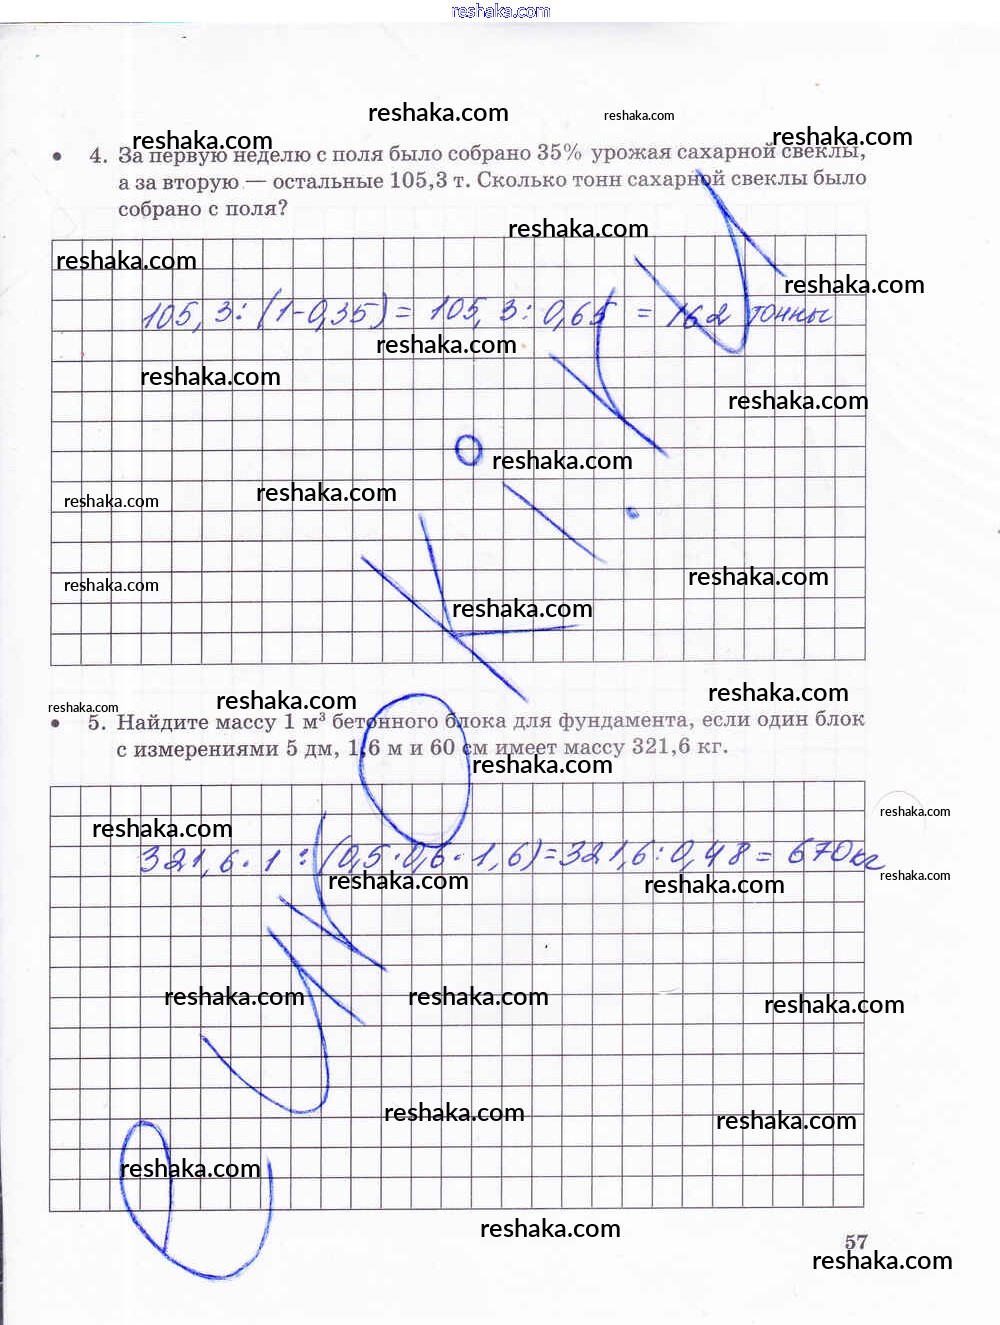 reshaka.com
reshaka.com
reshaka.com
reshaka.com
reshaka.com
• 4. За первую неделю с поля было собрано 35% урожая сахарной свеклы,
а за вторую — остальные 105,3 т. Сколько тонн сахарной свеклы было
собрано с поля?
reshaka.com
reshaka.com
reshaka.com
105,3 : (1-0,35) = 105,3 : 0,65 = 162 тонны
reshaka.com
reshaka.com
reshaka.com
reshaka.com
reshaka.com
reshaka.com
reshaka.com
reshaka.com
reshaka.com
reshaka.com
reshaka.com
reshaka.com
• 5. Найдите массу 1 м³ бетонного блока для фундамента, если один блок
с измерениями 5 дм, 1,6 м и 60 см имеет массу 321,6 кг.
reshaka.com
reshaka.com
reshaka.com
321,6 · 1 : (0,5 · 0,6 · 1,6) = 321,6 : 0,48 = 670 кг
reshaka.com
reshaka.com
reshaka.com
reshaka.com
reshaka.com
reshaka.com
reshaka.com
reshaka.com
reshaka.com
reshaka.com
57
reshaka.com